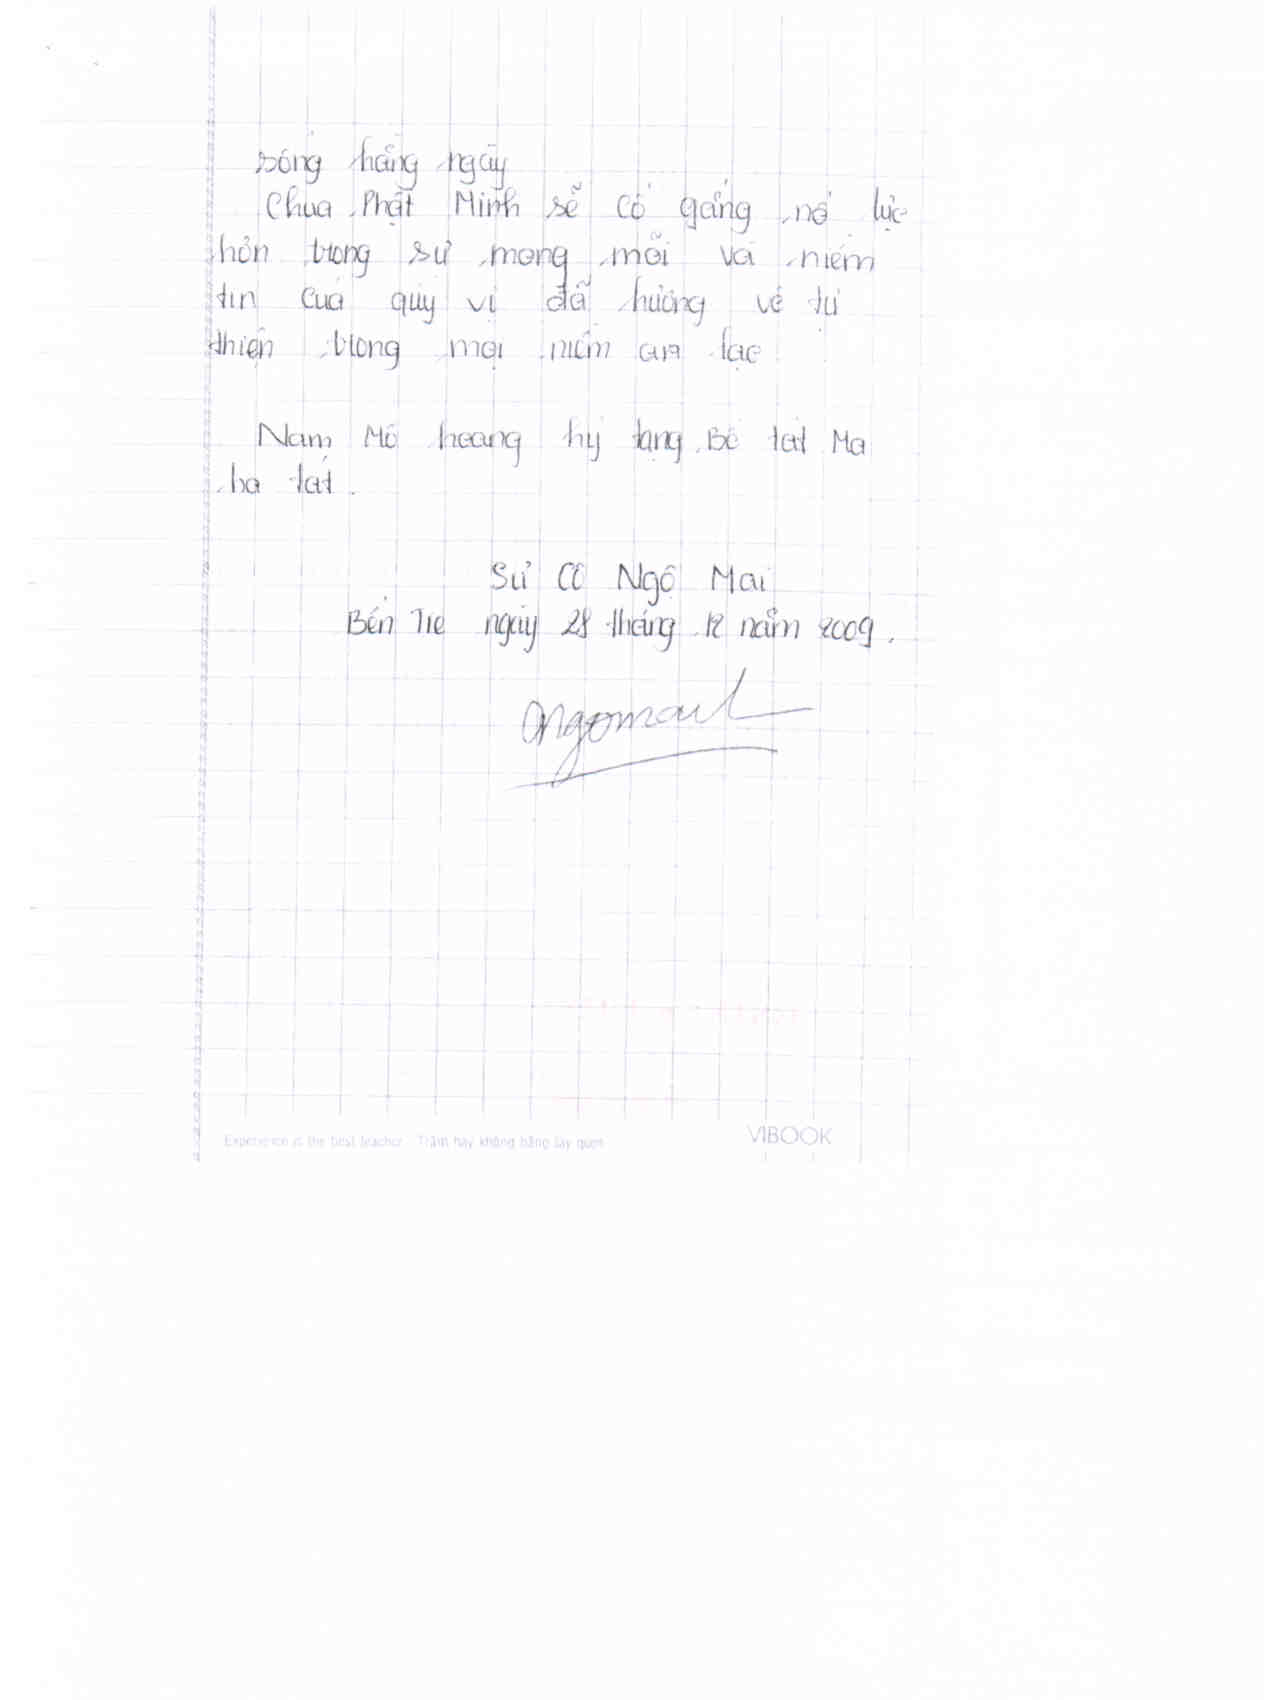 sống hằng ngày
Chùa Phật Minh sẽ cố gắng nổ lực
hơn trong sự mong mỏi và niềm
tin của qúy vị đã hướng về từ
thiện trong mọi niềm an lạc
Nam Mô hoang hỷ tạng Bồ tát Ma
ha tát.
Sư Cô Ngộ Mai
Bến Tre ngày 28 tháng 12 năm 2009.
Ngomai
Experience is the best teacher - Trăm hay không bằng tay quen
VIBOOK